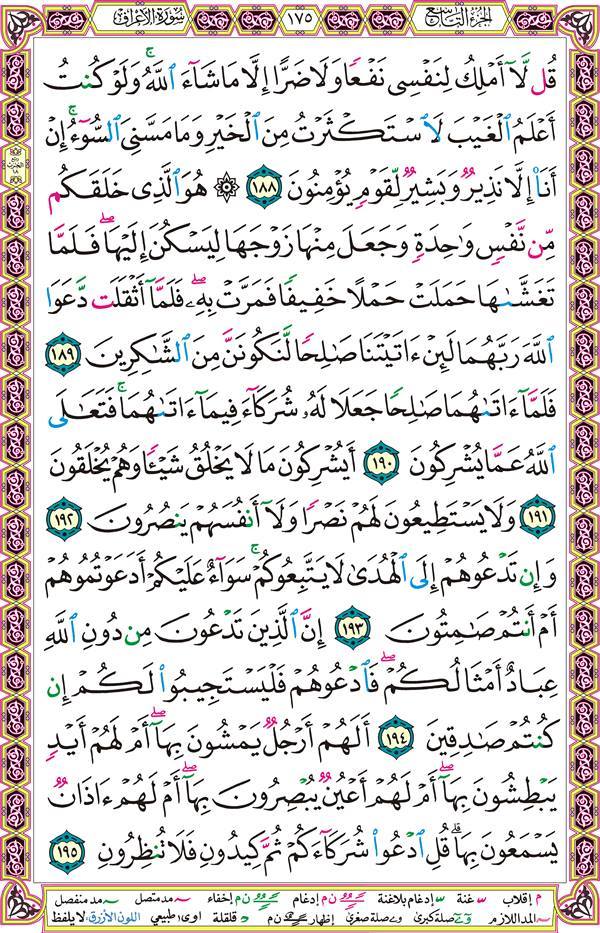 الجزء التاسع ١٧٥ سورة الأعراف
قُل لَّآ أَمْلِكُ لِنَفْسِى نَفْعًا وَلَا ضَرًّا إِلَّا مَا شَآءَ ٱللَّهُ ۚ وَلَوْ كُنتُ
أَعْلَمُ ٱلْغَيْبَ لَٱسْتَكْثَرْتُ مِنَ ٱلْخَيْرِ وَمَا مَسَّنِىَ ٱلسُّوٓءُ ۚ إِنْ
أَنَا۠ إِلَّا نَذِيرٌ وَبَشِيرٌ لِّقَوْمٍ يُؤْمِنُونَ ١٨٨ ۞ هُوَ ٱلَّذِى خَلَقَكُم
مِّن نَّفْسٍ وَٰحِدَةٍ وَجَعَلَ مِنْهَا زَوْجَهَا لِيَسْكُنَ إِلَيْهَا ۖ فَلَمَّا
تَغَشَّىٰهَا حَمَلَتْ حَمْلًا خَفِيفًا فَمَرَّتْ بِهِۦ ۖ فَلَمَّآ أَثْقَلَت دَّعَوَا
ٱللَّهَ رَبَّهُمَا لَئِنْ ءَاتَيْتَنَا صَٰلِحًا لَّنَكُونَنَّ مِنَ ٱلشَّٰكِرِينَ ١٨٩
فَلَمَّآ ءَاتَىٰهُمَا صَٰلِحًا جَعَلَا لَهُۥ شُرَكَآءَ فِيمَآ ءَاتَىٰهُمَا ۚ فَتَعَٰلَى
ٱللَّهُ عَمَّا يُشْرِكُونَ ١٩٠ أَيُشْرِكُونَ مَا لَا يَخْلُقُ شَيْـًٔا وَهُمْ يُخْلَقُونَ
١٩١ وَلَا يَسْتَطِيعُونَ لَهُمْ نَصْرًا وَلَآ أَنفُسَهُمْ يَنصُرُونَ ١٩٢
وَإِن تَدْعُوهُمْ إِلَى ٱلْهُدَىٰ لَا يَتَّبِعُوكُمْ ۚ سَوَآءٌ عَلَيْكُمْ أَدَعَوْتُمُوهُمْ
أَمْ أَنتُمْ صَٰمِتُونَ ١٩٣ إِنَّ ٱلَّذِينَ تَدْعُونَ مِن دُونِ ٱللَّهِ
عِبَادٌ أَمْثَالُكُمْ ۖ فَٱدْعُوهُمْ فَلْيَسْتَجِيبُوا۟ لَكُمْ إِن
كُنتُمْ صَٰدِقِينَ ١٩٤ أَلَهُمْ أَرْجُلٌ يَمْشُونَ بِهَآ ۖ أَمْ لَهُمْ أَيْدٍ
يَبْطِشُونَ بِهَآ ۖ أَمْ لَهُمْ أَعْيُنٌ يُبْصِرُونَ بِهَآ ۖ أَمْ لَهُمْ ءَاذَانٌ
يَسْمَعُونَ بِهَا ۗ قُلِ ٱدْعُوا۟ شُرَكَآءَكُمْ ثُمَّ كِيدُونِ فَلَا تُنظِرُونِ ١٩٥
م إقلاب غنة إدغام بلاغنة ن م إدغام ن م إخفاء مد متصل مد منفصل
المد اللازم صلة كبرى صلة صغرى إظهار ن م قلقلة اوى طبيعي اللون الأزرق لا يلفظ